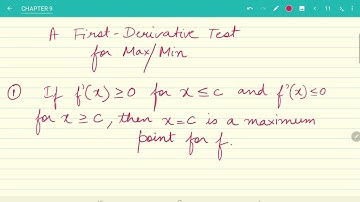 CHAPTER 9
11
A First-Derivative Test
for Max/Min
① If f'(x) ≥ 0 for x ≤ c and f'(x) ≤ 0
for x ≥ c, then x = c is a maximum
point for f.